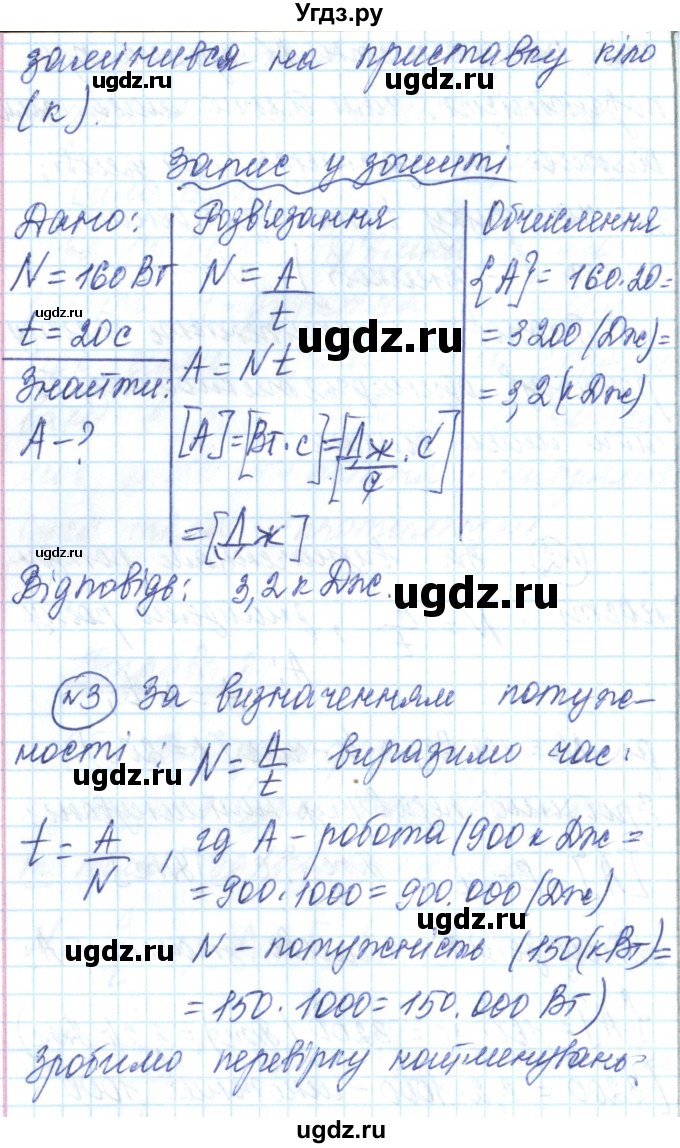 Угдз.ру
замінився на приставку кіло
(к).
Запис у зошиті
Дано:
N = 160 Вт
t = 20с
Знайти:
A - ?
Розв'язання
N = A/t
A = Nt
[A] = [Вт · с] = [Дж/с · с]
= [Дж]
Обчислення
{A} = 160·20 =
= 3200 (Дж) =
= 3,2 (кДж)
Відповідь: 3,2 кДж.
№3 За визначенням потуж-
ності: N = A/t виразимо час:
t = A/N, гд A - робота (900 кДж =
= 900·1000 = 900.000 (Дж)
N - потужність (150 (кВт) =
= 150·1000 = 150.000 Вт)
Зробимо перевірку найменувань:
ugdz.ru
ugdz.ru
ugdz.ru
ugdz.ru
ugdz.ru
ugdz.ru
ugdz.ru
ugdz.ru
ugdz.ru
ugdz.ru
ugdz.ru